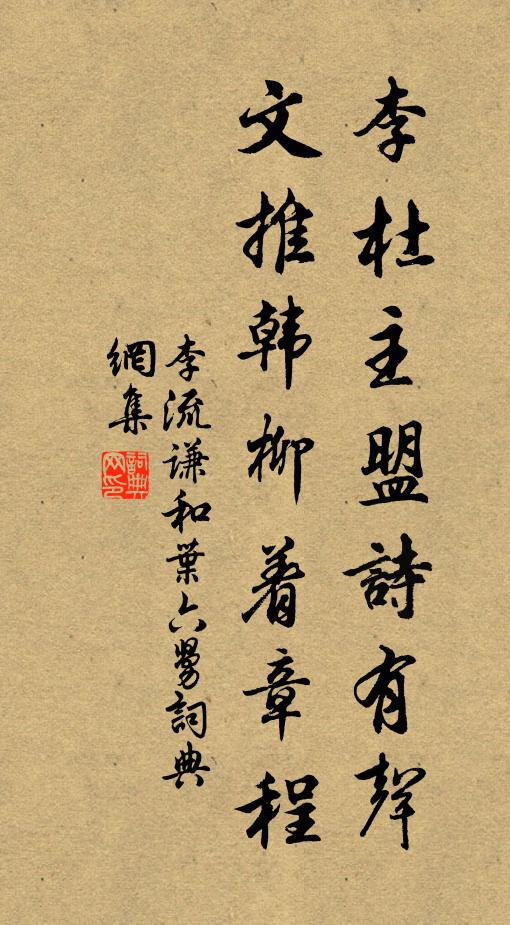 李杜主盟詩有聲
文推韩柳着章程
李流谦和葉六舅詞典
網集
詞典網印